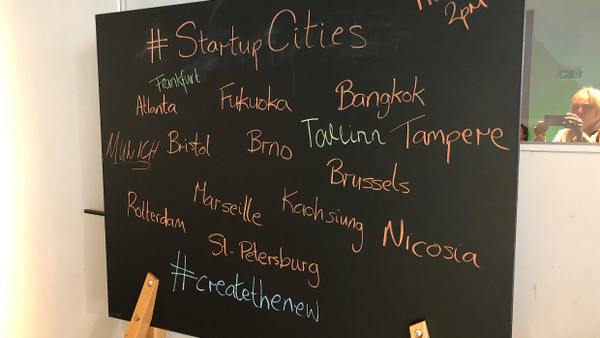 2pm
#StartupCities
Frankfurt
Atlanta Fukuoka Bangkok
MUNICH Bristol Brno Tallinn Tampere
Brussels
Rotterdam Marseille Kaohsiung Nicosia
St-Petersburg
#createthenew